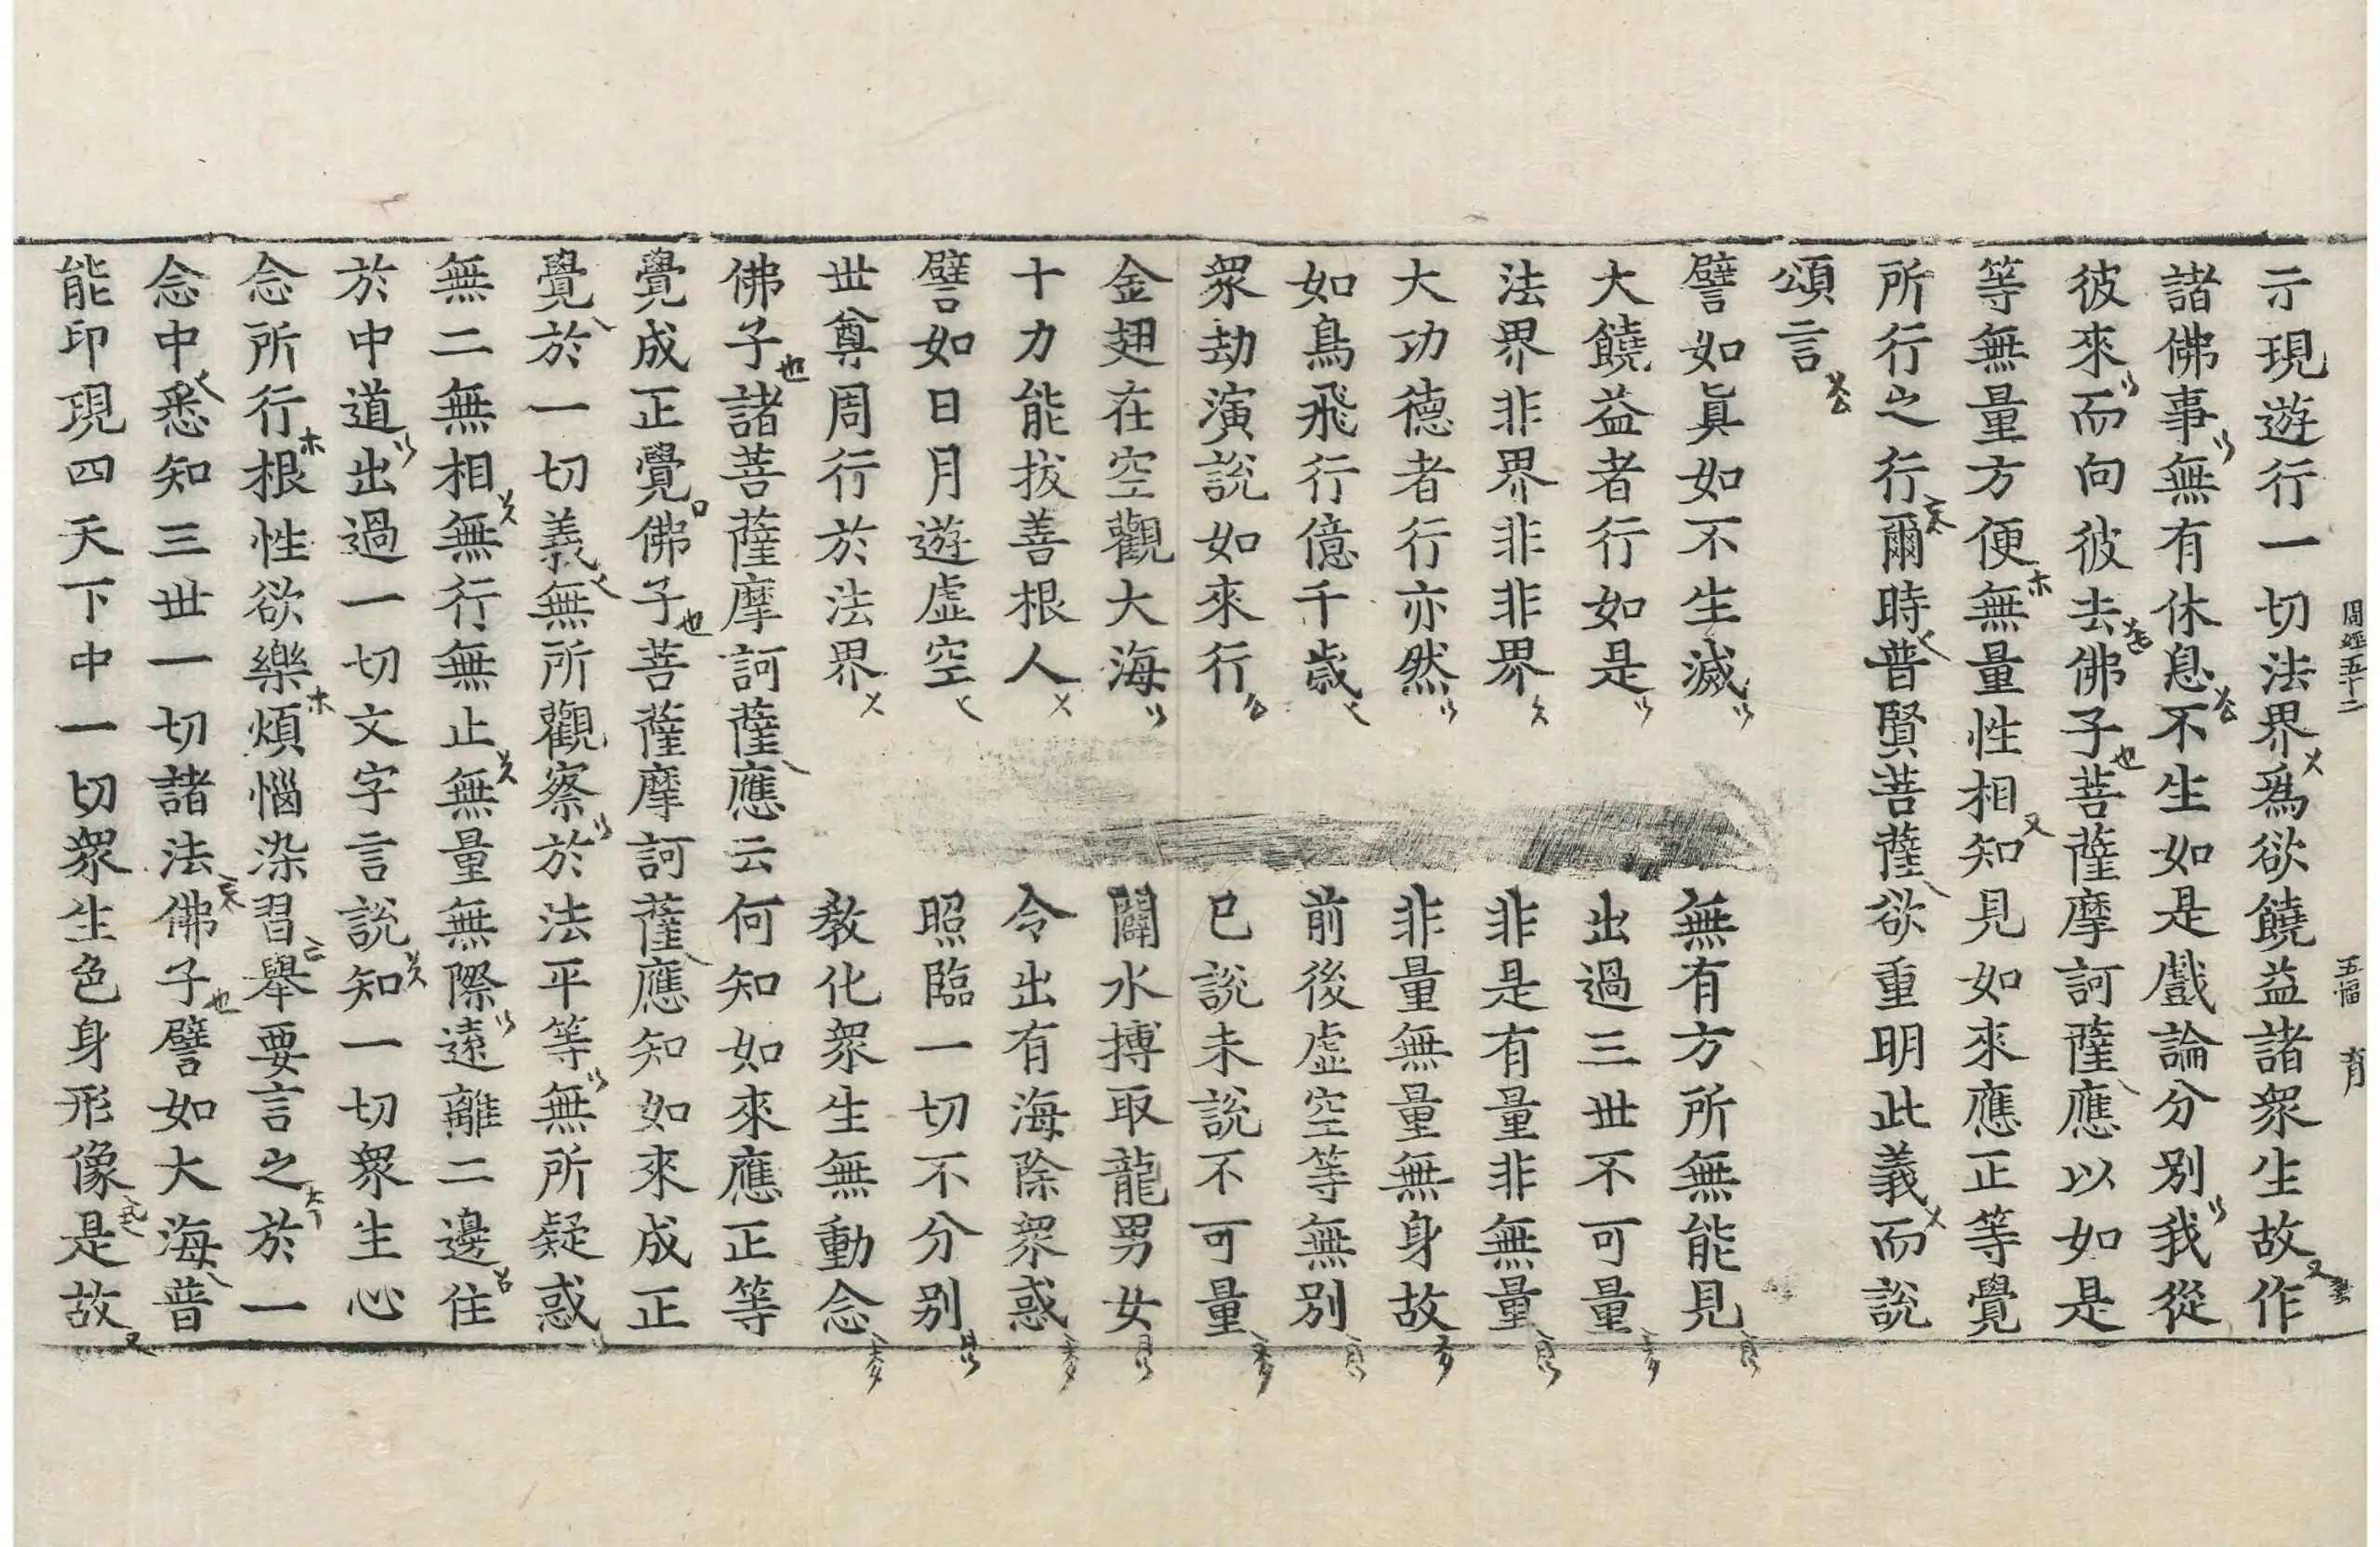 周經五十二 五幅 育
示現遊行一切法界爲欲饒益諸衆生故作
諸佛事無有休息不生如是戲論分别我從
彼來而向彼去佛子菩薩摩訶薩應以如是
等無量方便無量性相知見如來應正等覺
所行之行爾時普賢菩薩欲重明此義而說
頌言
譬如眞如不生滅 無有方所無能見
大饒益者行如是 出過三世不可量
法界非界非非界 非是有量非無量
大功德者行亦然 非量無量無身故
如鳥飛行億千歲 前後虛空等無别
衆劫演說如來行 已說未說不可量
金翅在空觀大海 闢水搏取龍男女
十力能拔善根人 令出有海除衆惑
譬如日月遊虛空 照臨一切不分别
世尊周行於法界 教化衆生無動念
佛子諸菩薩摩訶薩應云何知如來應正等
覺成正覺佛子菩薩摩訶薩應知如來成正
覺於一切義無所觀察於法平等無所疑惑
無二無相無行無止無量無際遠離二邊住
於中道出過一切文字言說知一切衆生心
念所行根性欲樂煩惱染習舉要言之於一
念中悉知三世一切諸法佛子譬如大海普
能印現四天下中一切衆生色身形像是故